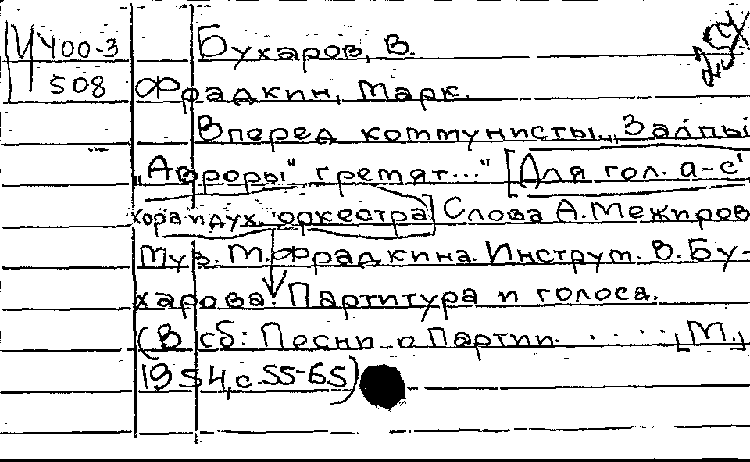 Ц400-3
508
254
Бухаров, В.
Фрадкин, Марк.
Вперед коммунисты „Залпы
„Авроры" гремят..." [Для гол. а-с'
хора и дух. оркестра] Слова А. Межиров
Муз. М. Фрадкина. Инструм. В. Бу-
харова. Партитура и голоса.
(В сб: Песни о Партии . . . . . , М.,
1954, с. 55-65)